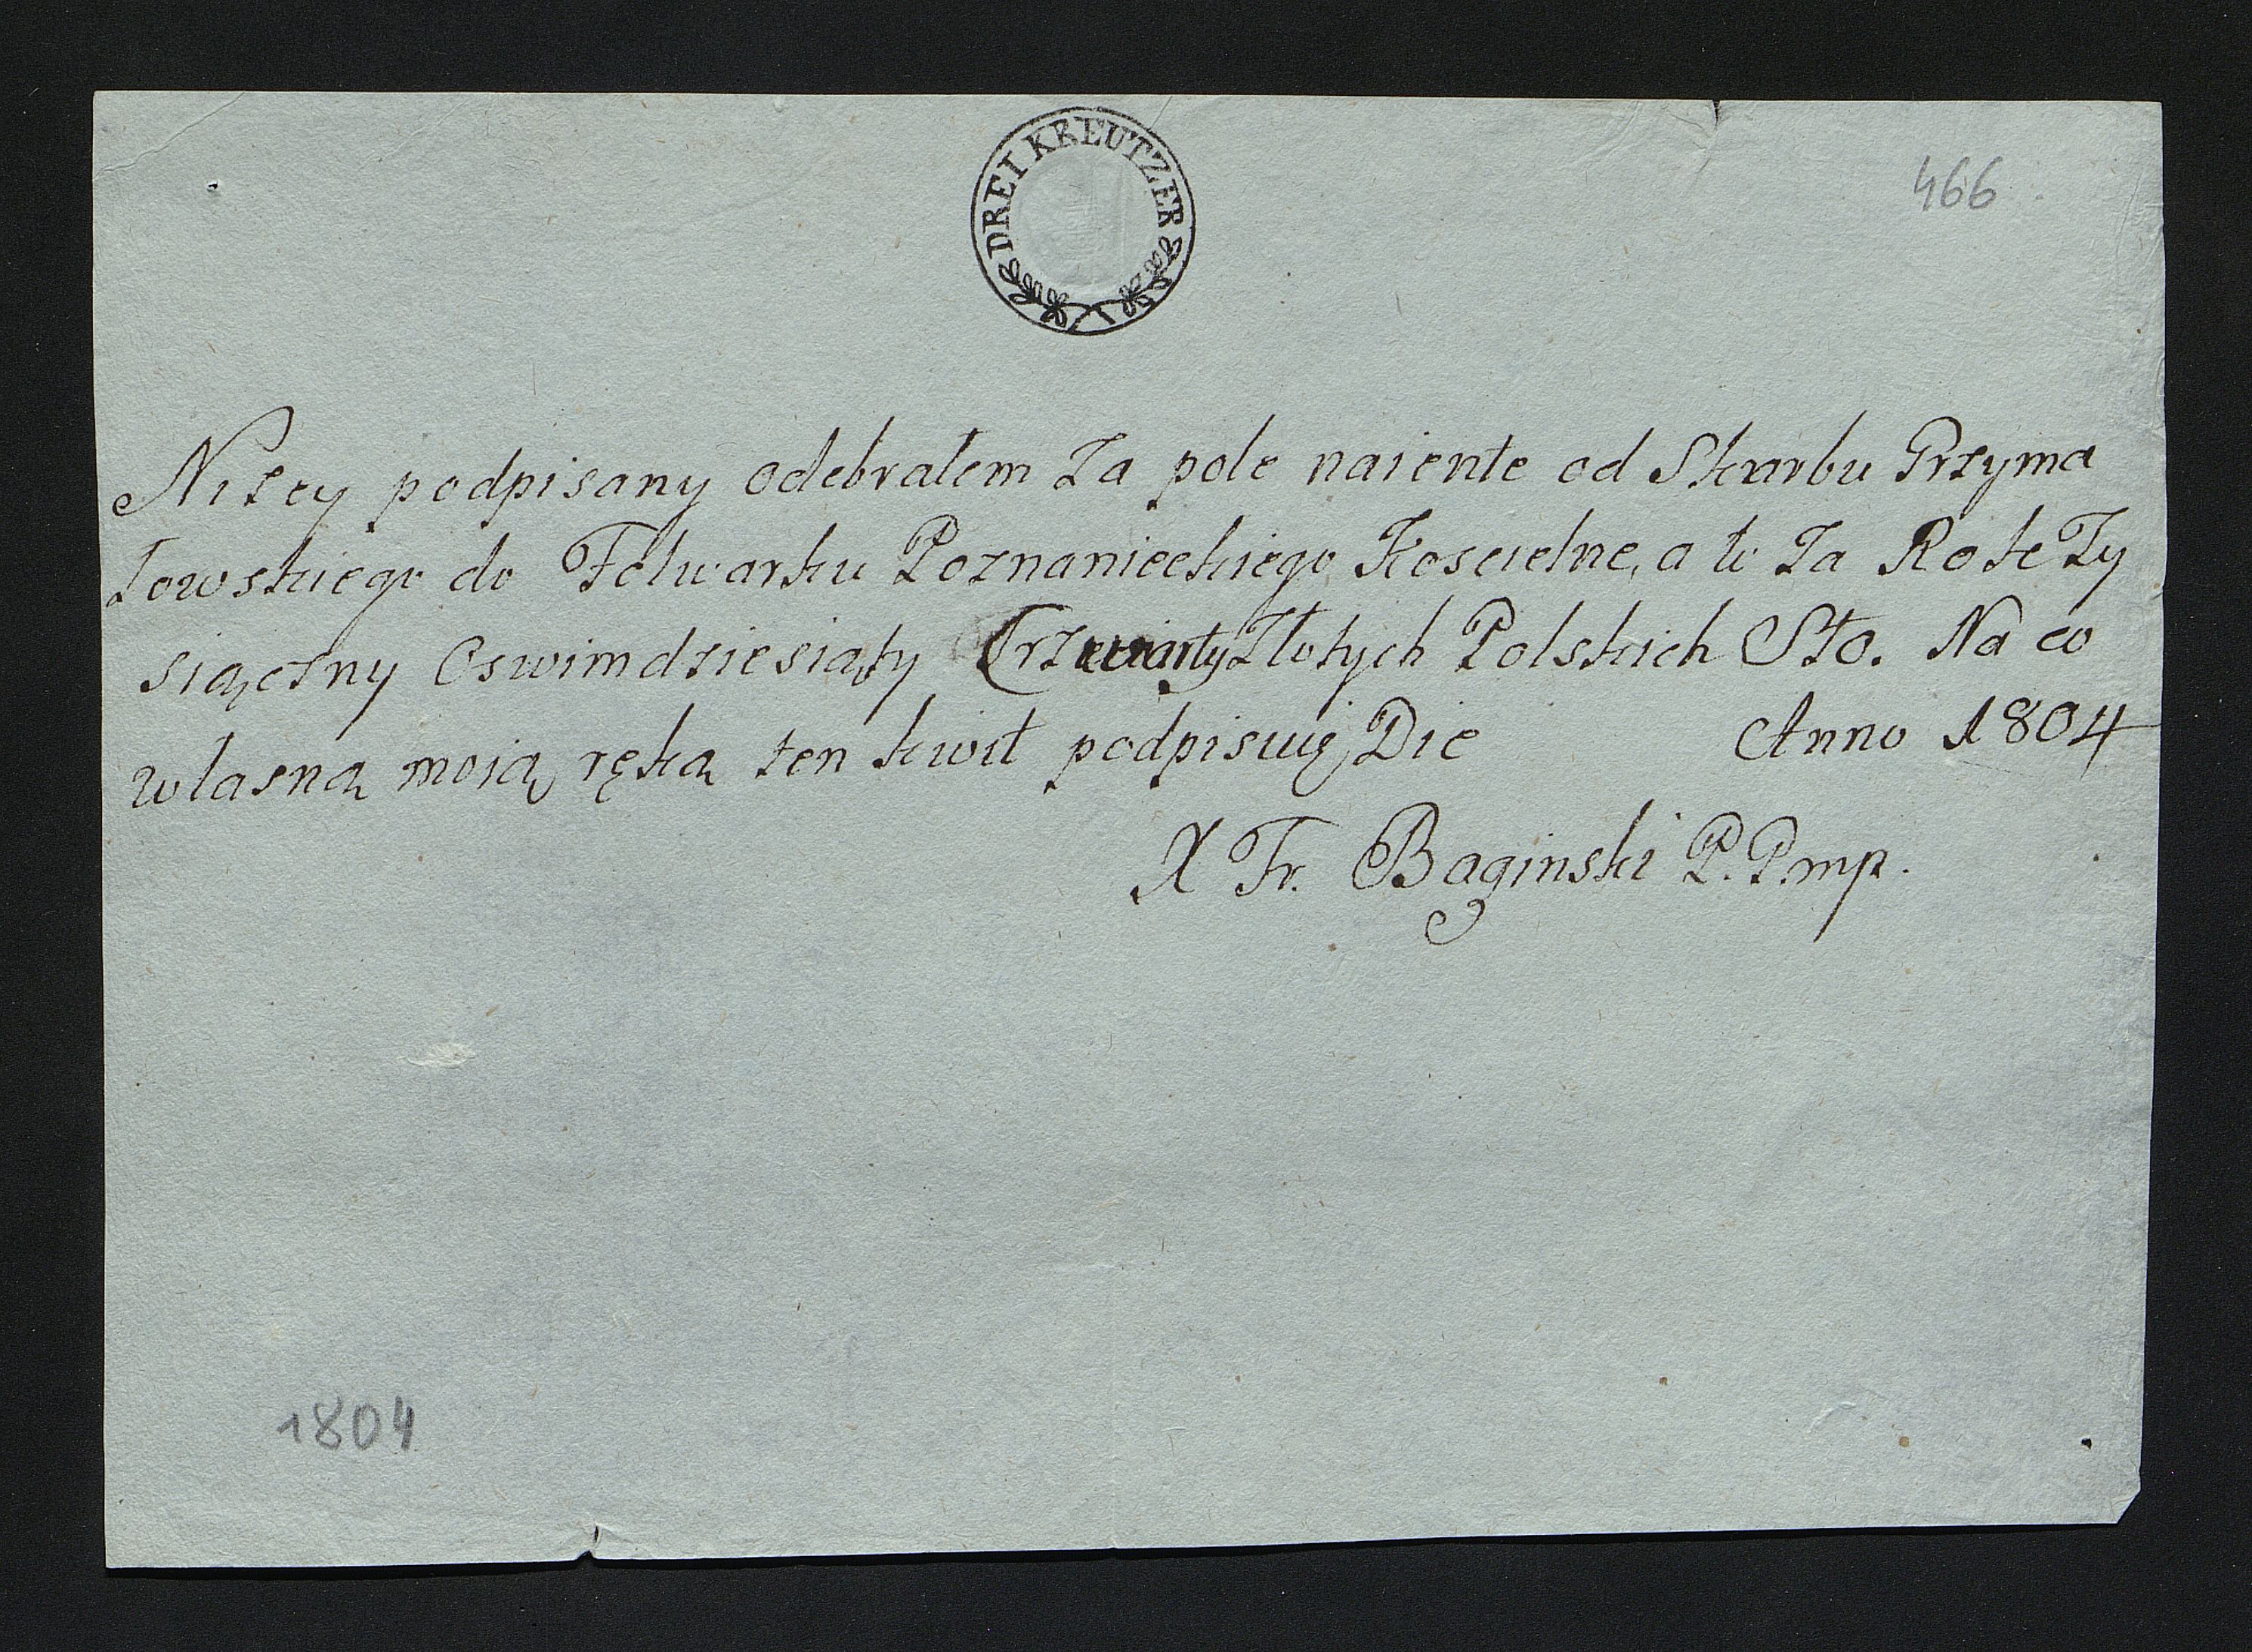 DREI KREUTZER
466
Nizey podpisany odebrałem Za pole naiente od Skarbu Grzyma
łowskiego do Folwarku Poznanieckiego Koscielne, a to Za Rok Ty
siączny Oswimdziesiąty Złotych Polskich Sto. Na co
własną moią ręką ten kwit podpisuię Die Anno 1804
X Fr. Baginski P. P. mp.
1804